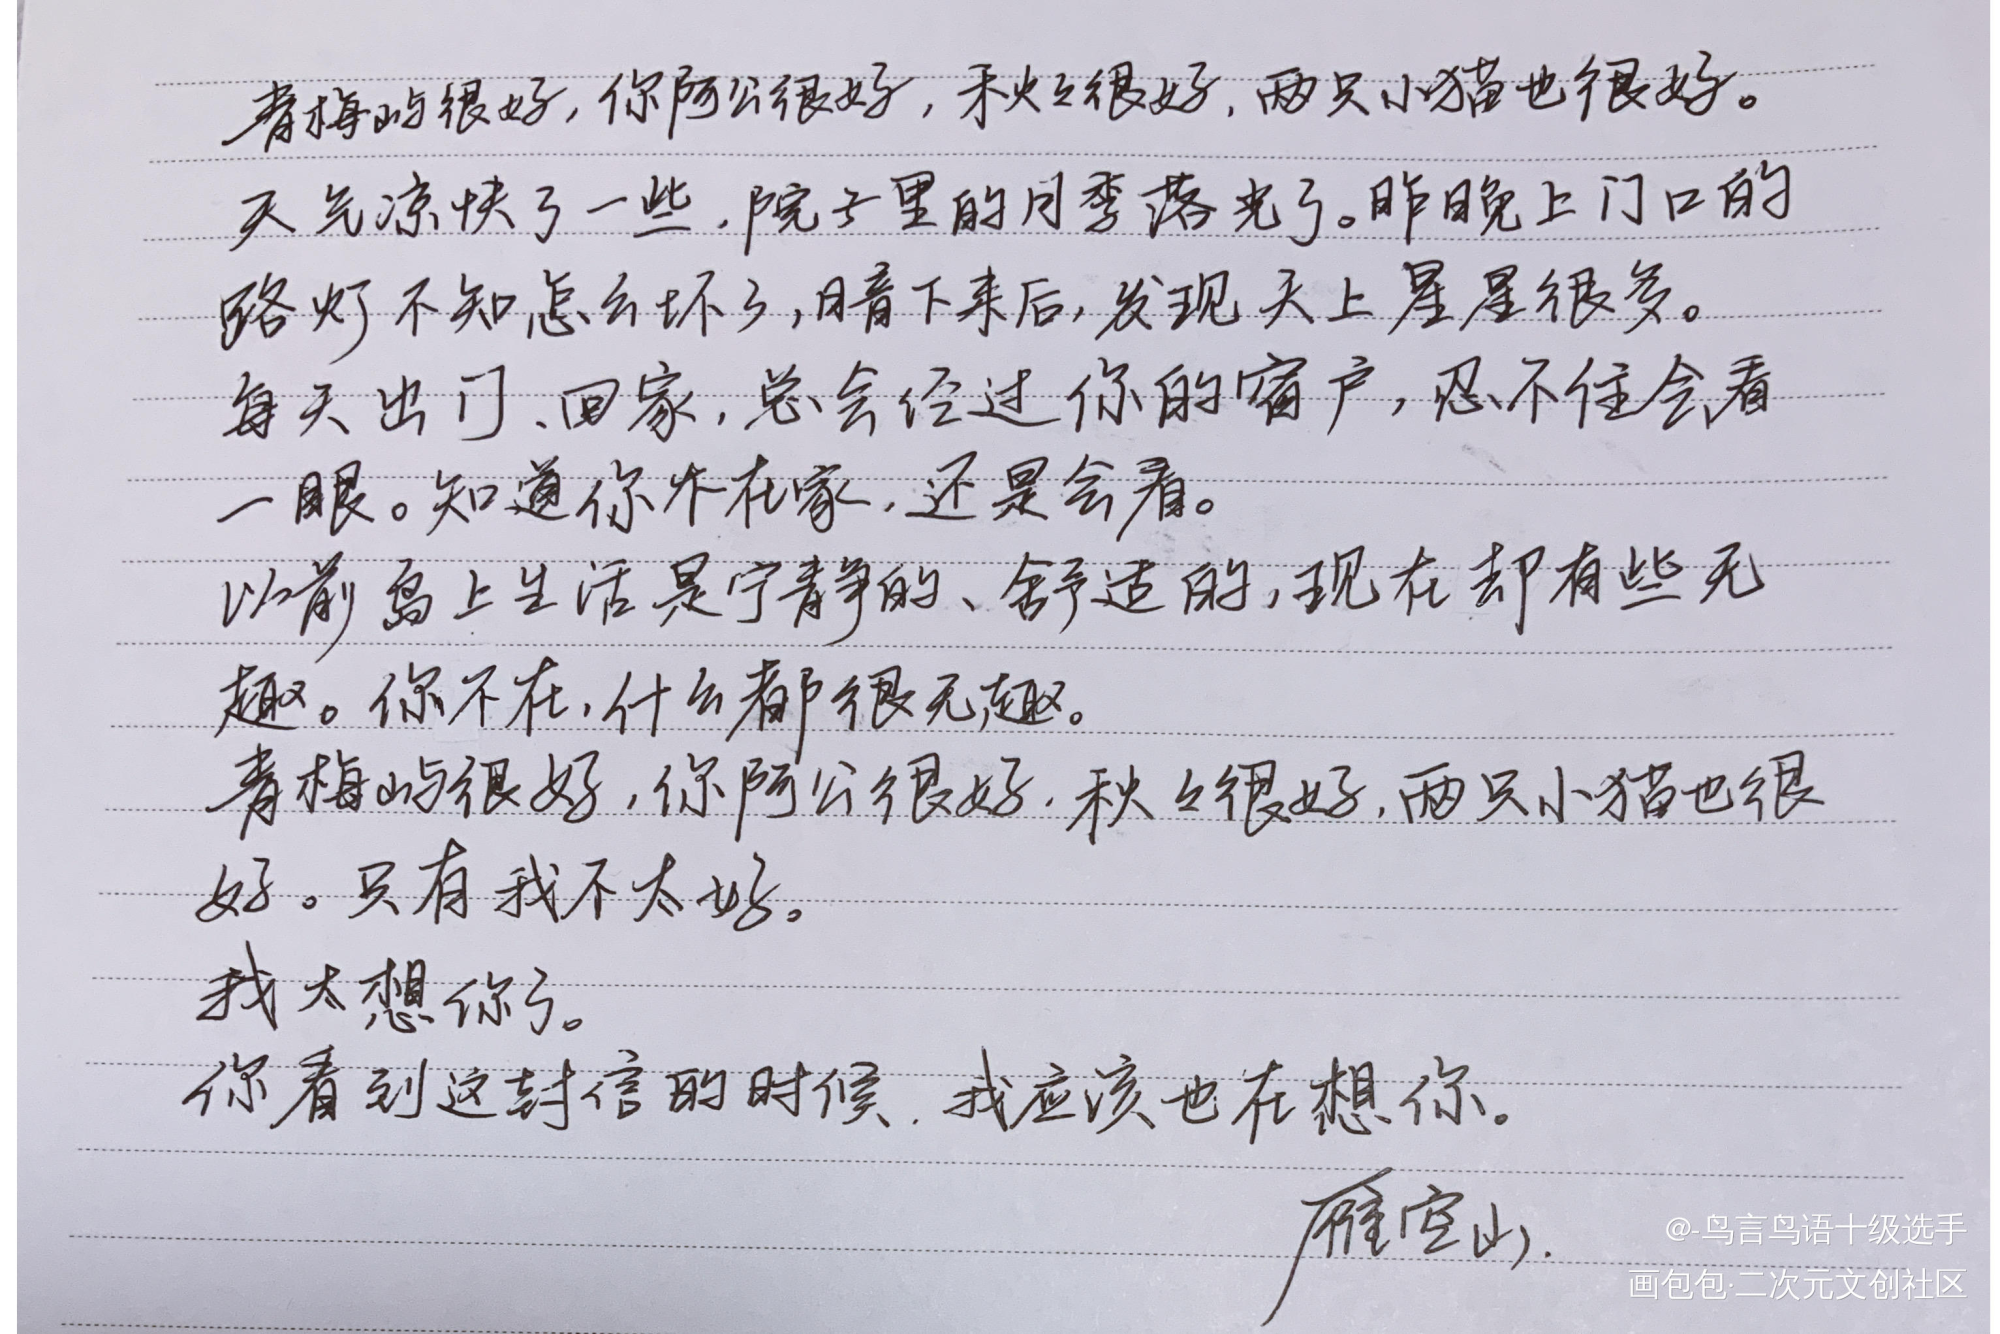 青梅屿很好，你阿公很好，秋々很好，两只小猫也很好。
天气凉快了一些，院子里的月季落光了。昨晚上门口的
路灯不知怎么坏了，暗下来后，发现天上星星很多。
每天出门、回家，总会经过你的窗户，忍不住会看
一眼。知道你不在家，还是会看。
以前岛上生活是宁静的、舒适的，现在却有些无
趣。你不在，什么都很无趣。
青梅屿很好，你阿公很好，秋々很好，两只小猫也很
好。只有我不太好。
我太想你了。
你看到这封信的时候，我应该也在想你。
雁空山.
@-鸟言鸟语十级选手
画包包·二次元文创社区